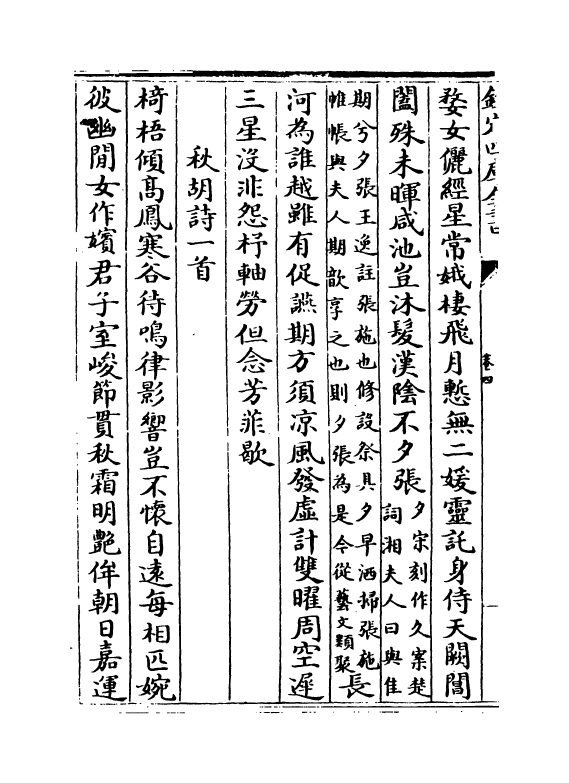 欽定四庫全書
卷四
婺女儷經星常娥棲飛月慙無二媛靈託身侍天闕閶
闔殊未暉咸池豈沐髮漢陰不夕張
夕宋刻作久案楚
詞湘夫人曰與佳
期兮夕張王逸註張施也修設祭具夕早洒掃張施
帷帳與夫人期歆享之也則夕張為是今從藝文類聚
長
河為誰越雖有促讌期方須凉風發虛計雙曜周空遲
三星没非怨杼軸勞但念芳菲歇
秋胡詩一首
椅梧傾髙鳳寒谷待鳴律影響豈不懷自遠每相匹婉
彼幽閒女作嬪君子室峻節貫秋霜明艷侔朝日嘉運